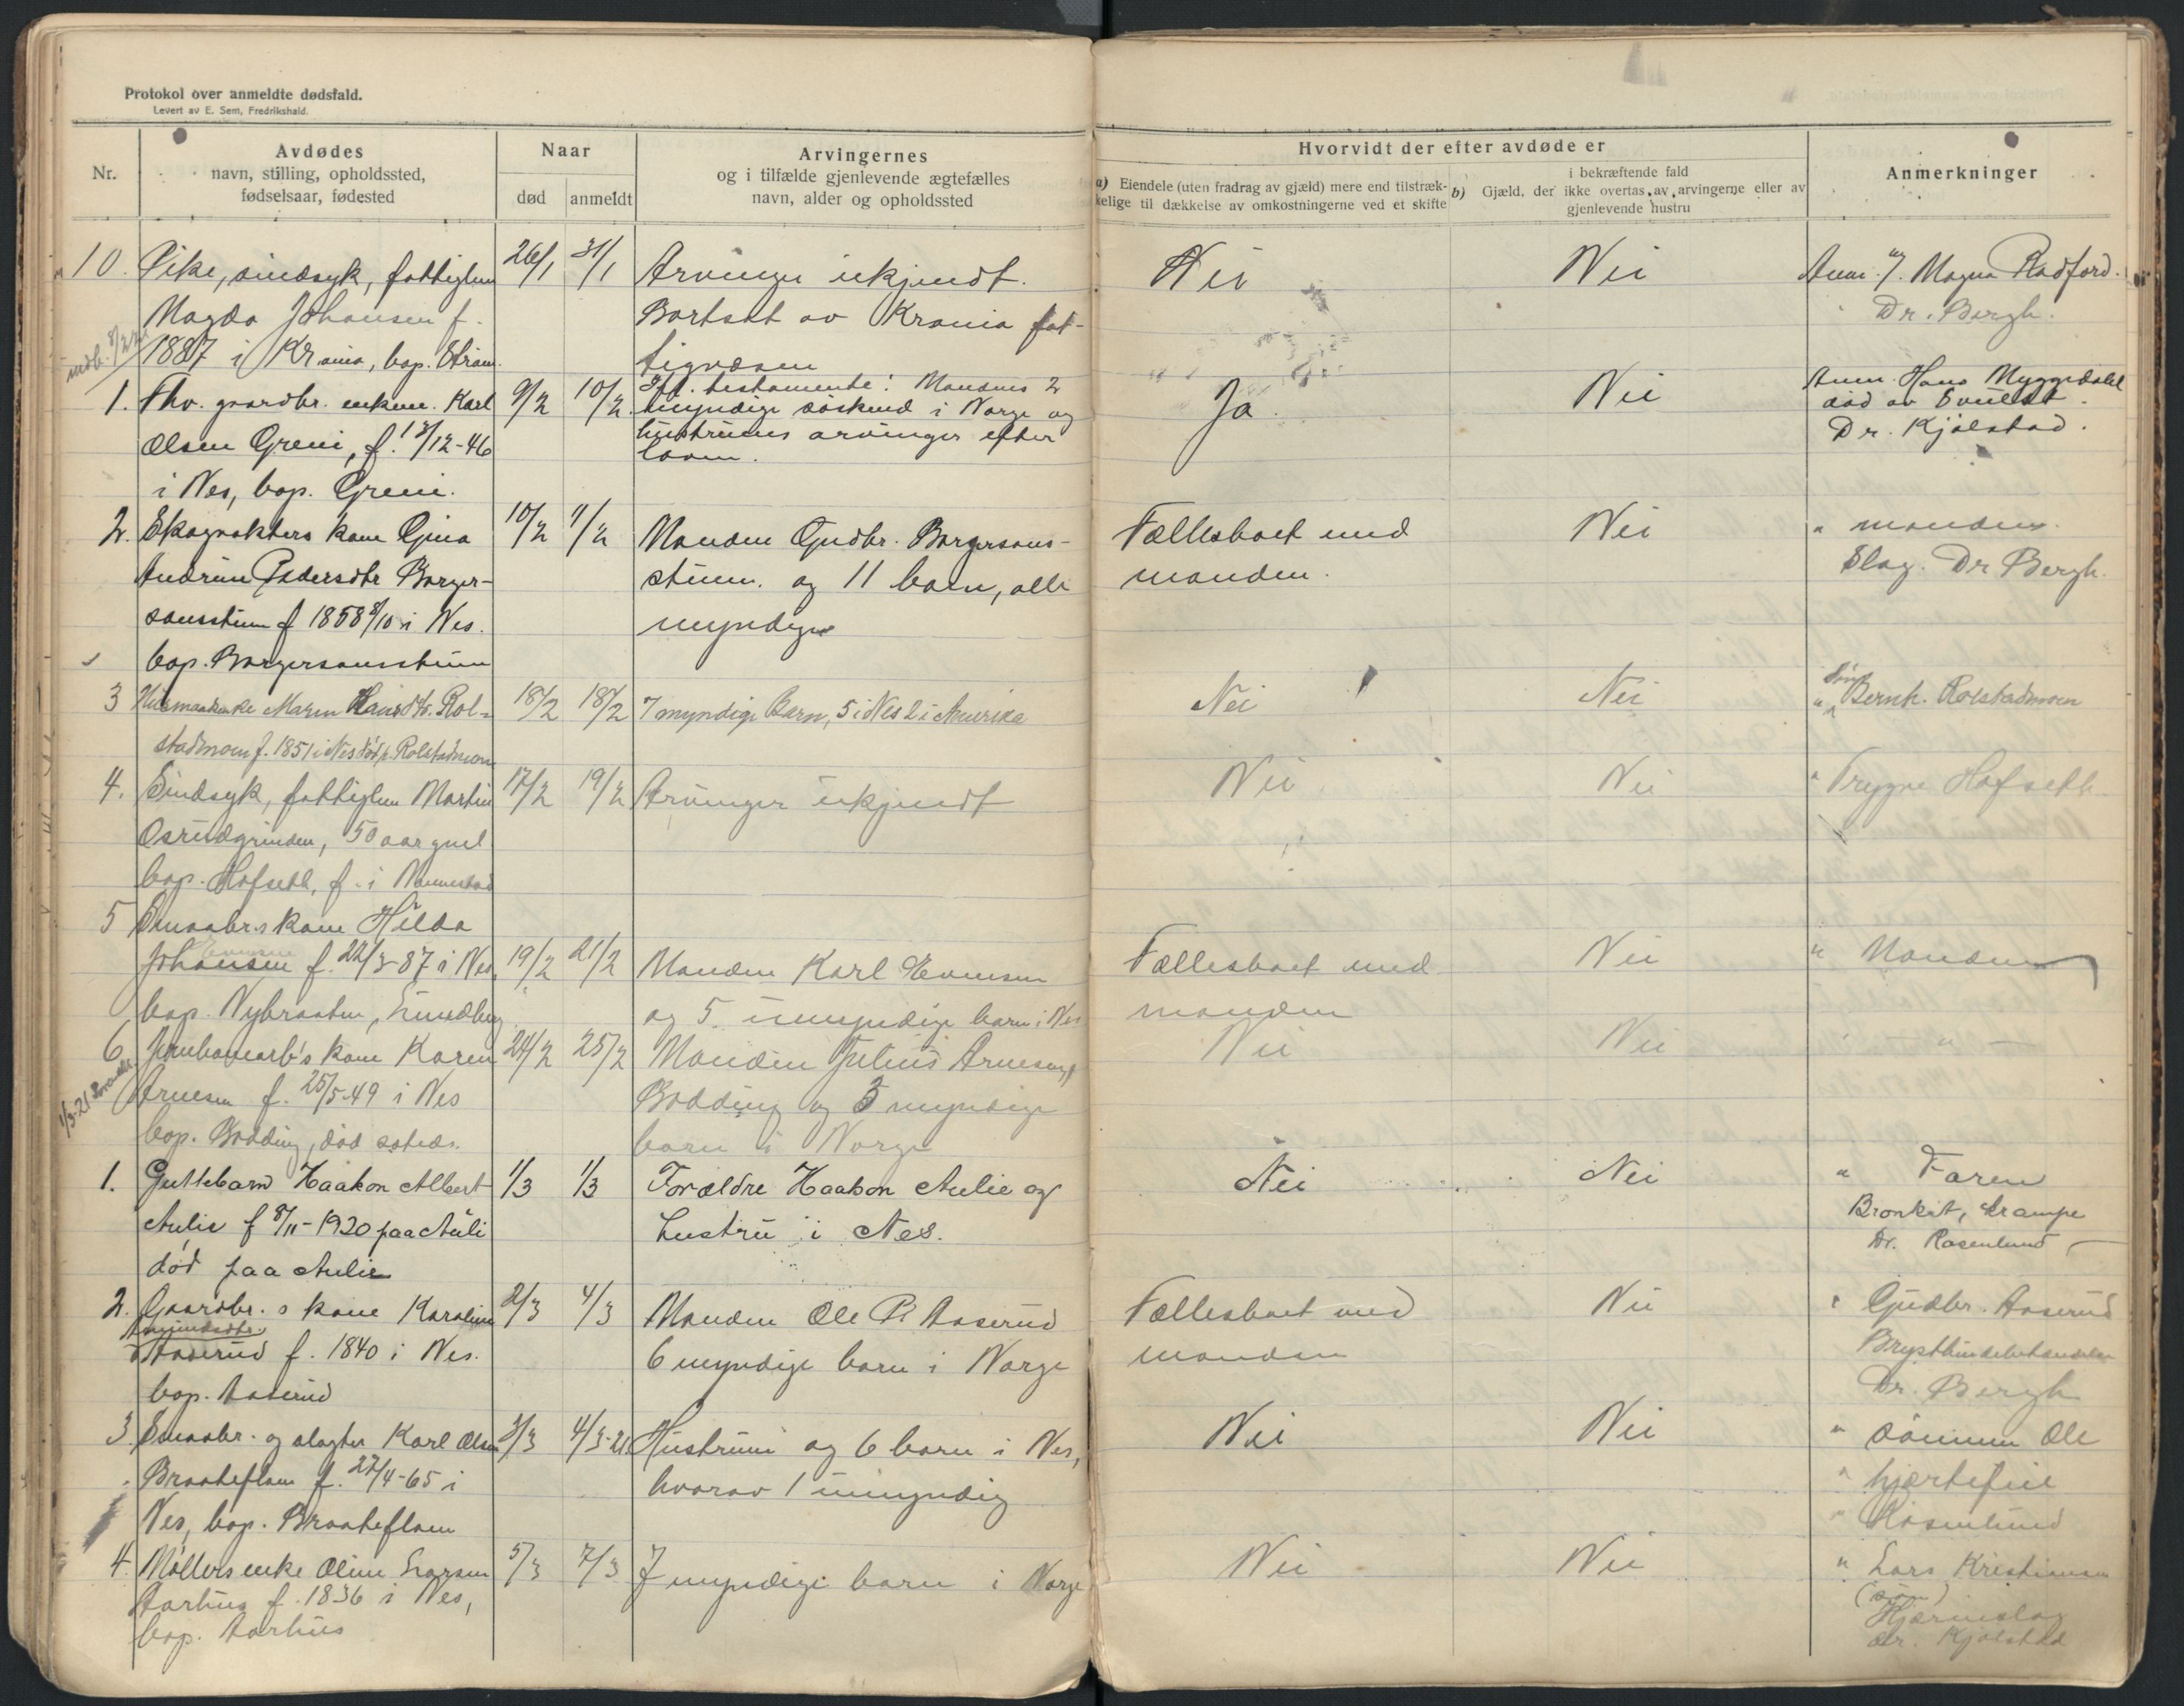 Protokol over anmeldte dødsfald.
Levert av E. Sem, Fredrikshald.
Nr.
Avdødes
navn, stilling, opholdssted,
fødselsaar, fødested
Naar
død
anmeldt
Arvingernes
og i tilfælde gjenlevende ægtefælles
navn, alder og opholdssted
Hvorvidt der efter avdøde er
a) Eiendele (uten fradrag av gjæld) mere end tilstræk-
kelige til dækkelse av omkostningerne ved et skifte
i bekræftende fald
b) Gjæld, der ikke overtas av arvingerne eller av
gjenlevende hustru
Anmerkninger
10. Pike, sindsyk, fattiglem 26/1 31/1 Arvinger ukjendt. Nei Nei Anm. af. Magna Radford.
Magda Johansen f. Bortsat av Krania fat- Dr. Bergh.
1887 i Krania, bop. Strøm. tigvæsen
1. Fhv. gaardbr. enkem. Karl 9/2 10/2 Iflg. testamente: Mandens 2 Ja. Nei Anm. Hans Myggedalel
Olsen Greni, f. 13/12-46 umyndige søskend i Norge og død av
i Nes, bop. Greni. hustruens arvinger efter Dr. Kjølstad.
loven.
2. Skogvokters kone Gina 10/2 11/2 Manden Gudbr. Borgersons- Fællesboet med Nei " manden
Andrine Pedersdtr Borger- stuen. og 11 barn, alle manden. Slag. Dr Bergh.
sonsstuen f 1858 8/10 i Nes. myndige
bop. Borgersonsstuen
3 Husmandsenke Maren Hansdtr. Rol- 18/2 18/2 7 myndige Barn, 5 i Nes 2 i Amerika Nei Nei " Søn Bernh. Rolstadmoen
stadmoen f. 1851 i Nes død p. Rolstadmoen
4. Sindsyk, fattiglem Martin 17/2 19/2 Arvinger ukjendt Nei Nei " Trygve Hofseth
Osrudgrinden, 50 aar gml
bop. Hofseth, f. i Nannestad
5 Smaabr.s kone Hilda
Johansen f. 22/3-87 i Nes, 19/2 21/2 Manden Karl Evensen Fællesboet med Nei " Manden
bop. Nybraaten, Lundberg og 5 umyndige barn i Nes manden
6 Jernbanearb's kone Karen 24/2 25/2 Manden Julius Arnesen, Nei Nei " - " -
Arnesen f. 25/5-49 i Nes Bodding og 3 myndige
bop. Bodding, død ssteds. barn i Norge
1. Guttebarn Haakon Albert 1/3 1/3 Forældre Haakon Aulie og Nei Nei " Faren
Aulie f 8/11-1920 paa Auli hustru i Nes. Bronkit, krampe
død paa Aulie Dr. Rosenlund
2. Gaardbr.s kone Karoline 2/3 4/3 Manden Ole P. Aaserud Fællesboet med Nei " Gudbr. Aaserud
Amundsdtr.
Aaserud f. 1840 i Nes. 6 myndige barn i Norge manden
bop. Aaserud Dr. Bergh
3. Smaabr. og slagter Karl Olsen 3/3 4/3-21 Hustruen og 6 barn i Nes, Nei Nei " sønnen Ole
Braateflaen f. 27/4-65 i hvorav 1 umyndig " hjertefeil
Nes, bop. Braateflaen " Rosenlund
4. Møllers enke Oline Larsen 5/3 7/3 7 myndige barn i Norge Nei Nei " Lars Kristiansen
Aarhus f. 1836 i Nes, (søn)
bop. Aarhus Hjerneslag
dr. Kjølstad